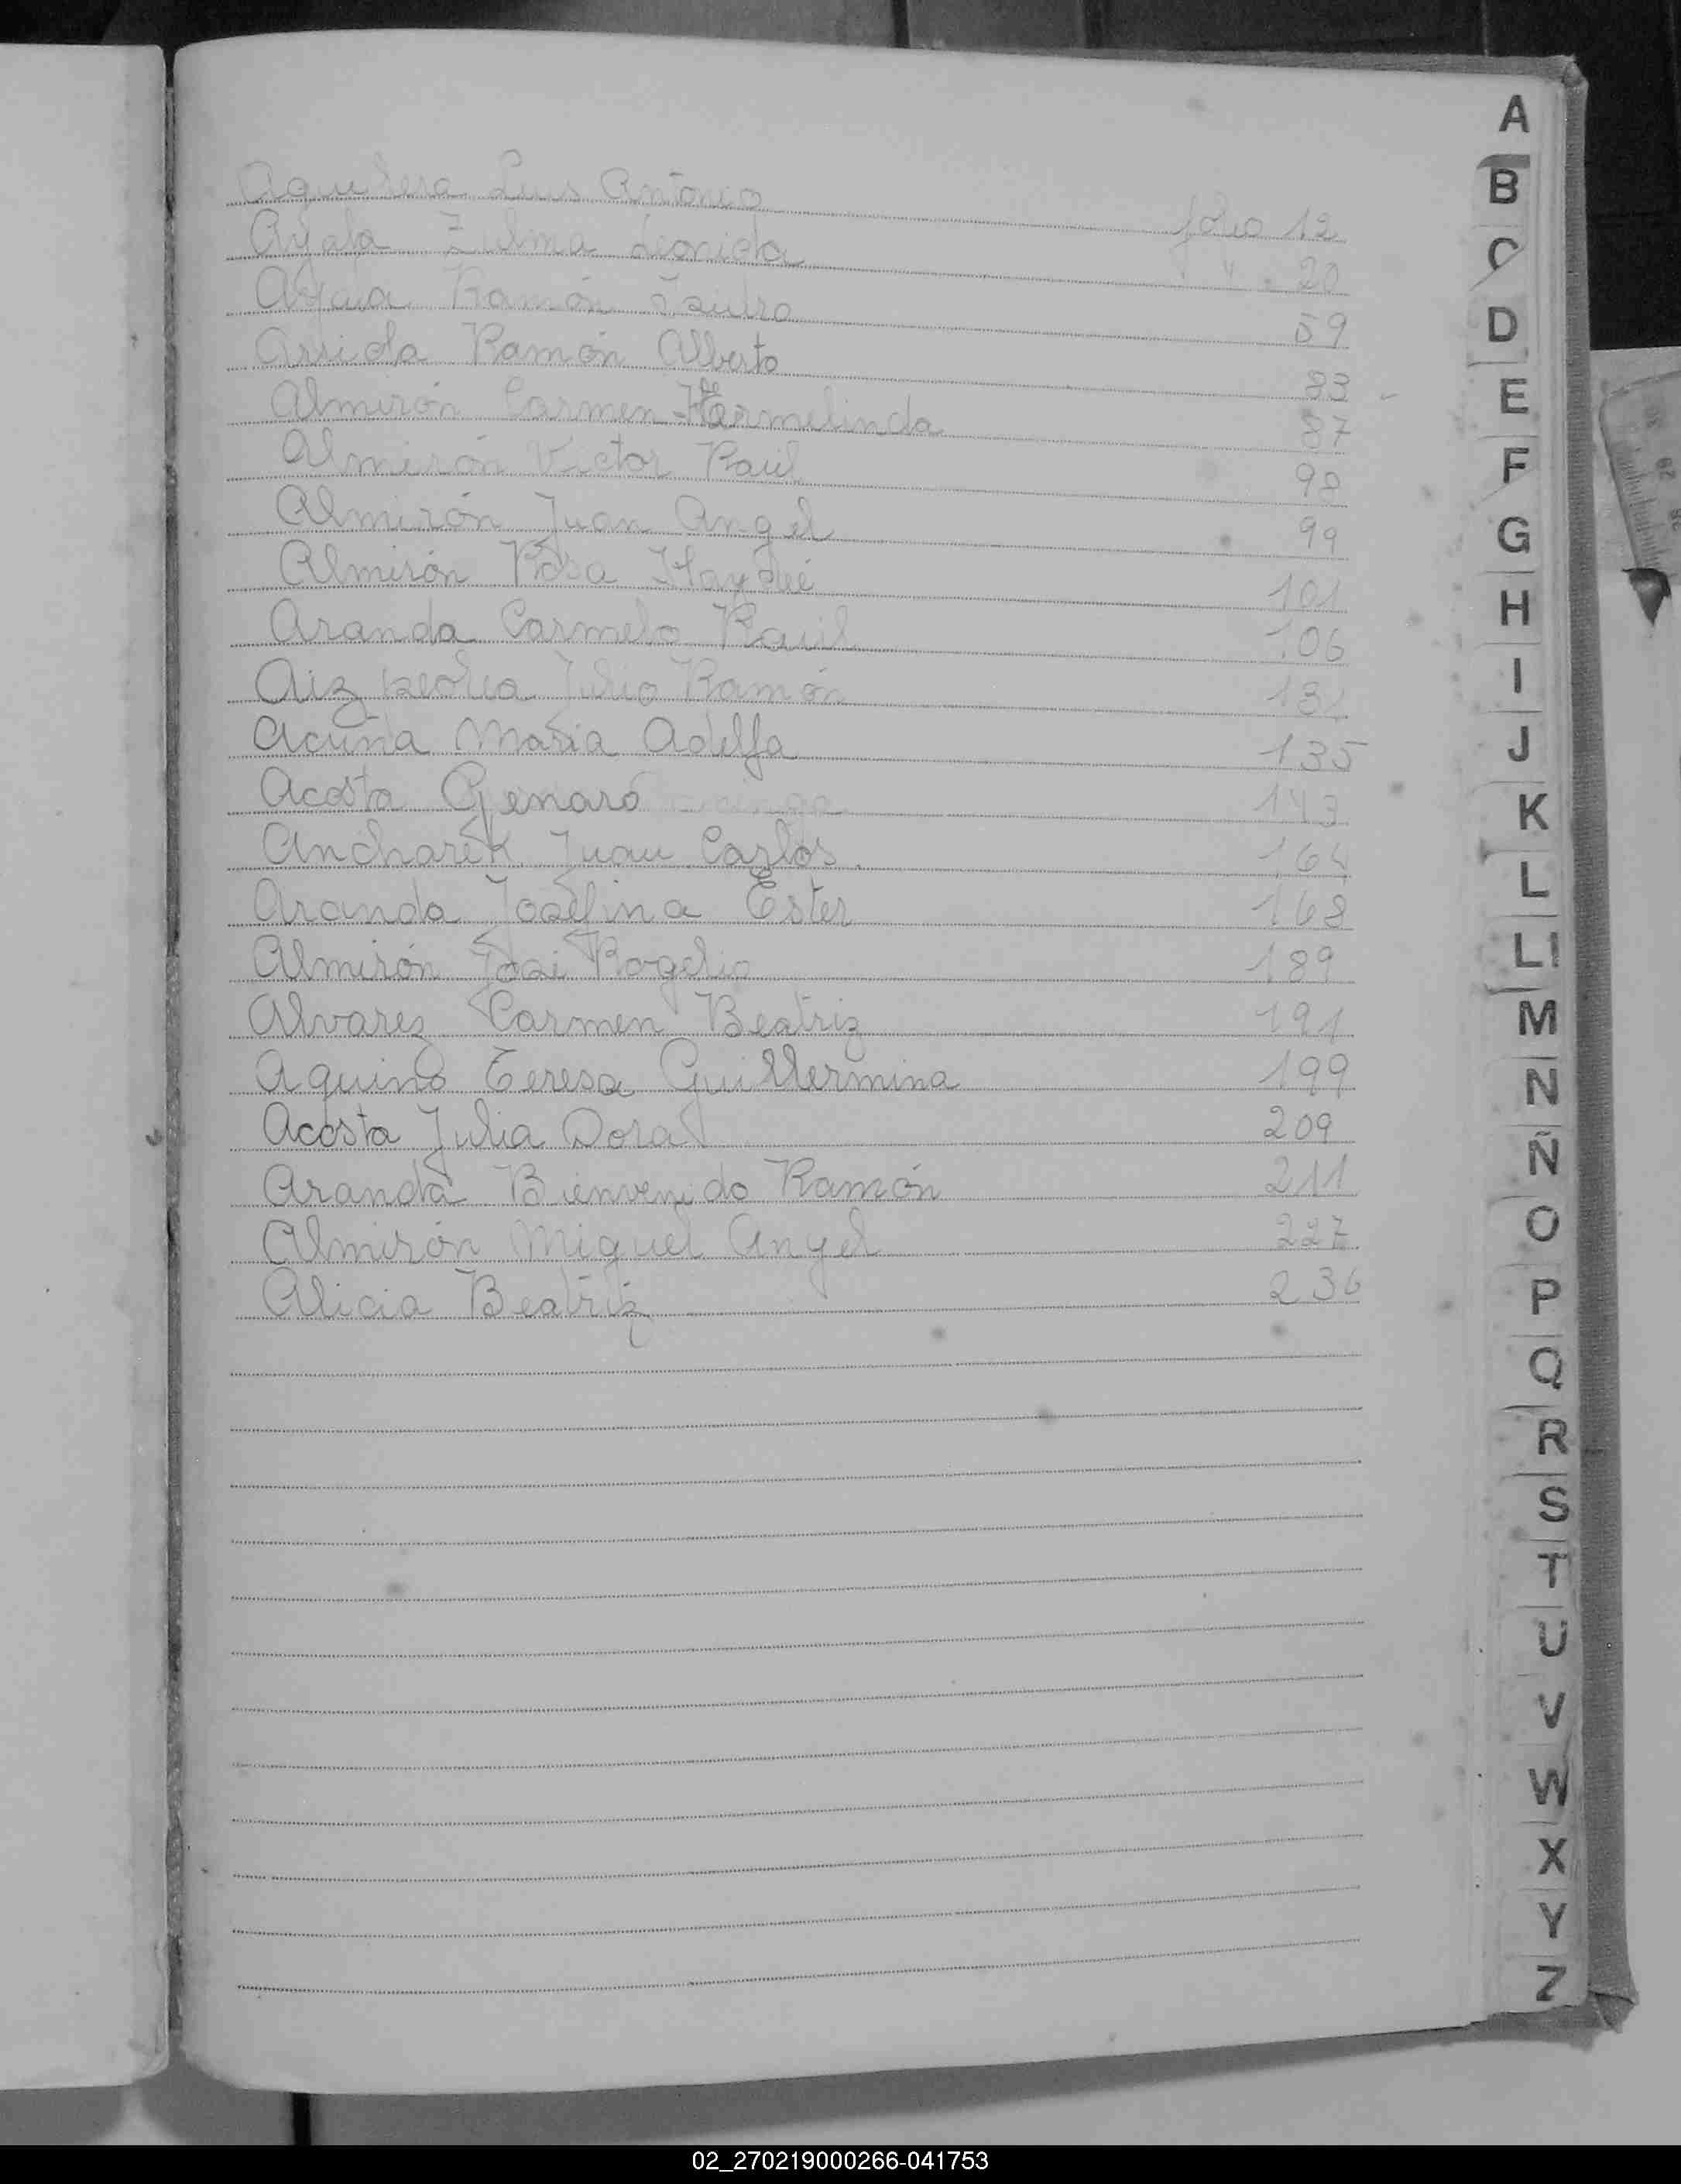 Luis Antonio folio 12
Ayala Zulma Leonida " " 20
Ramón 59
Ramón Alberto 83
Almirón Carmen Hermelinda 87
Almirón Victor Raúl 98
Almirón Juan Angel 99
Almirón Rosa Haydée 101
Aranda Carmelo Raúl 106
Julio Ramón
Acuña Maria Adelfa 135
Acosta Genaro 143
Ancharek Juan Carlos. 164
Aranda Josefina Ester 168
Almirón José Rogelio 189
Alvarez Carmen Beatriz 191
Aquino Teresa Guillermina 199
Acosta Julia Dora 209
Aranda Bienvenido Ramón 211
Almirón Miguel Angel 227
Alicia Beatriz 236
A
B
C
D
E
F
G
H
I
J
K
L
Ll
M
N
Ñ
O
P
Q
R
S
T
U
V
W
X
Y
Z
02_270219000266-041753